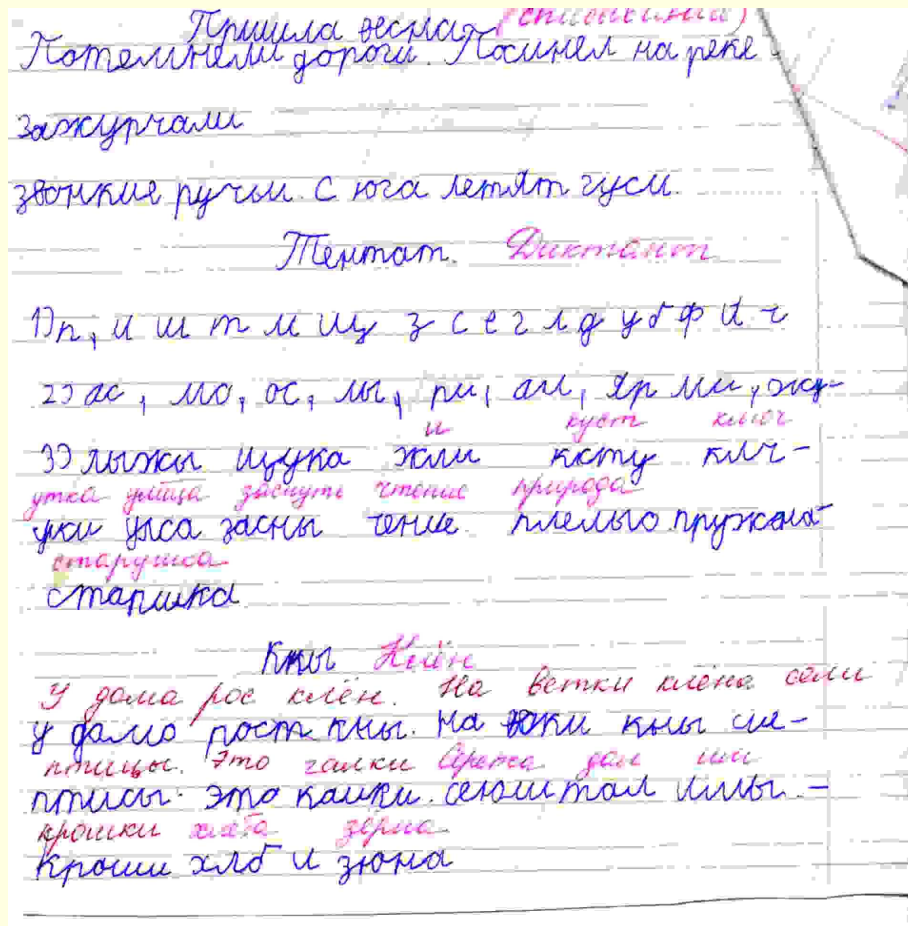 Пришла весна. (списывание)
Потемнели дороги. Посинел на реке
зажурчали
звонкие ручьи. С юга летят гуси.
Тентат. Диктант
1) п, и ш т м щ з с е г л д у б ф й ч
2) ас, мо, ос, мы, ри, ам, яр ми, жу-
и куст ключ
3) лыжы щука жли ксту клч-
утка улица заснуть чтение природа
уки улса засны чение плелыо пружона-
старушка
старшка
Кны Клён
У дома рос клён. На ветки клёна сели
у домо рост кны. На юки кны сие-
птицы. Это галки Серёжа дал им
птисы. это каики. сеюш тал имы -
крошки хлеба зёрна
кроши хлб и зюна